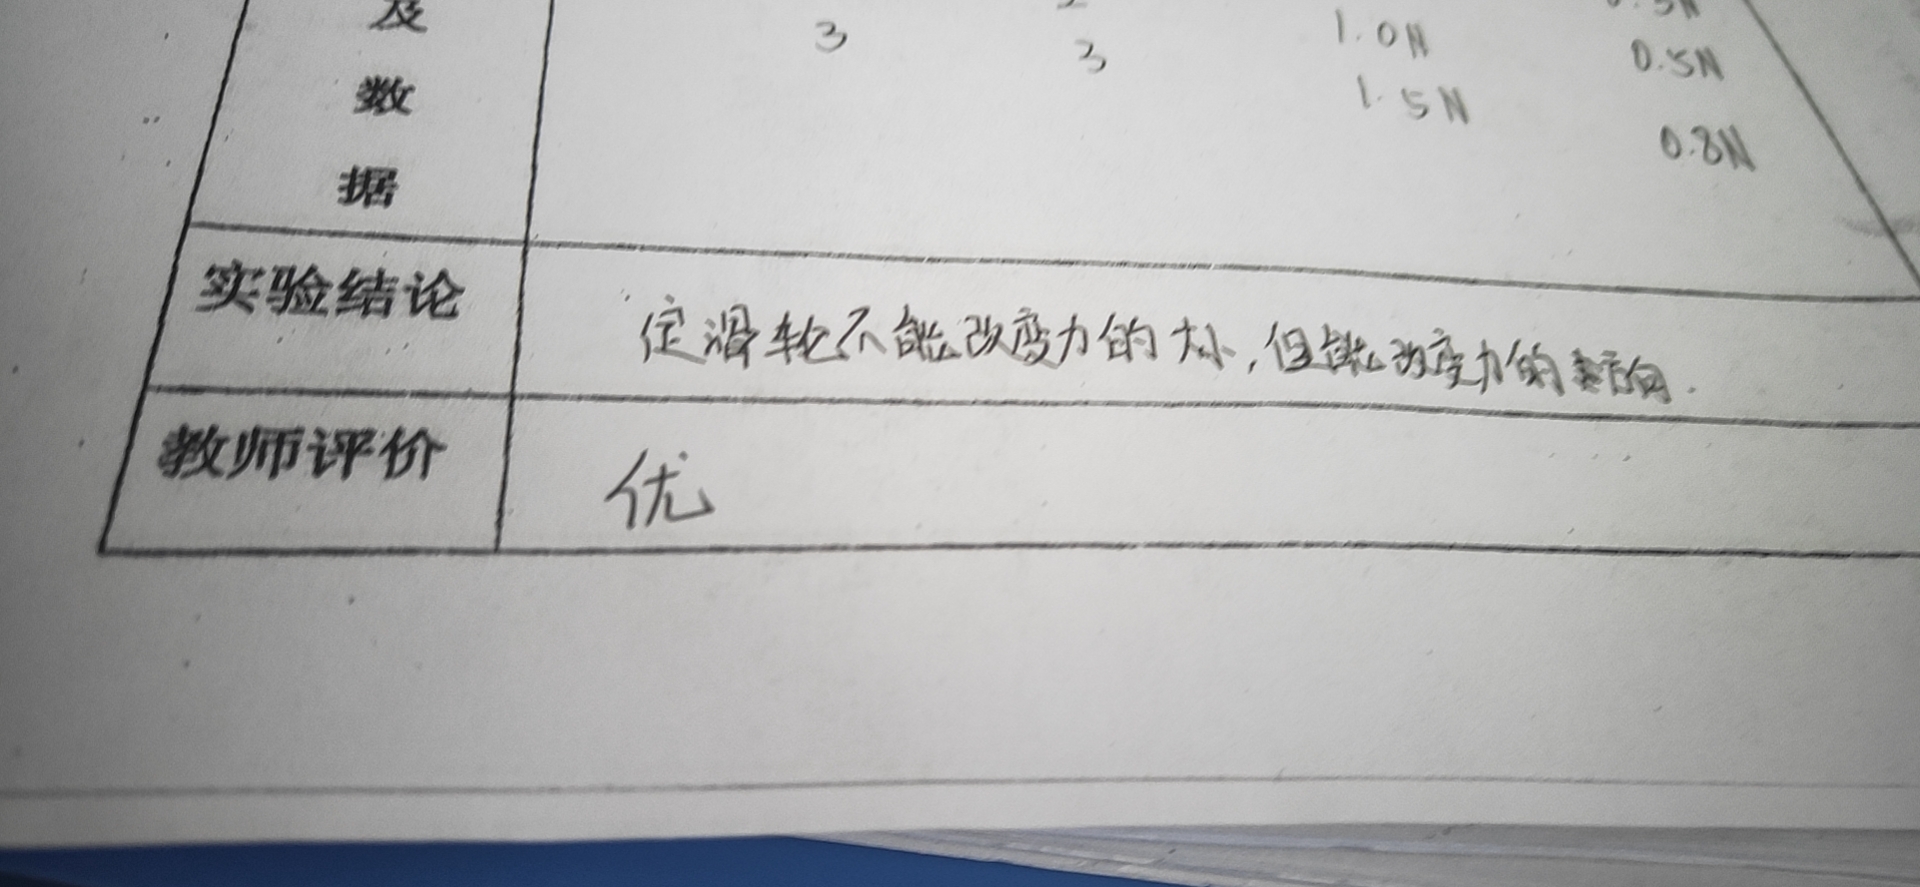 及
3 3 1.0N 0.5N
数
1.5N 0.8N
据
实验结论 定滑轮不能改变力的大小,但能改变力的方向.
教师评价 优